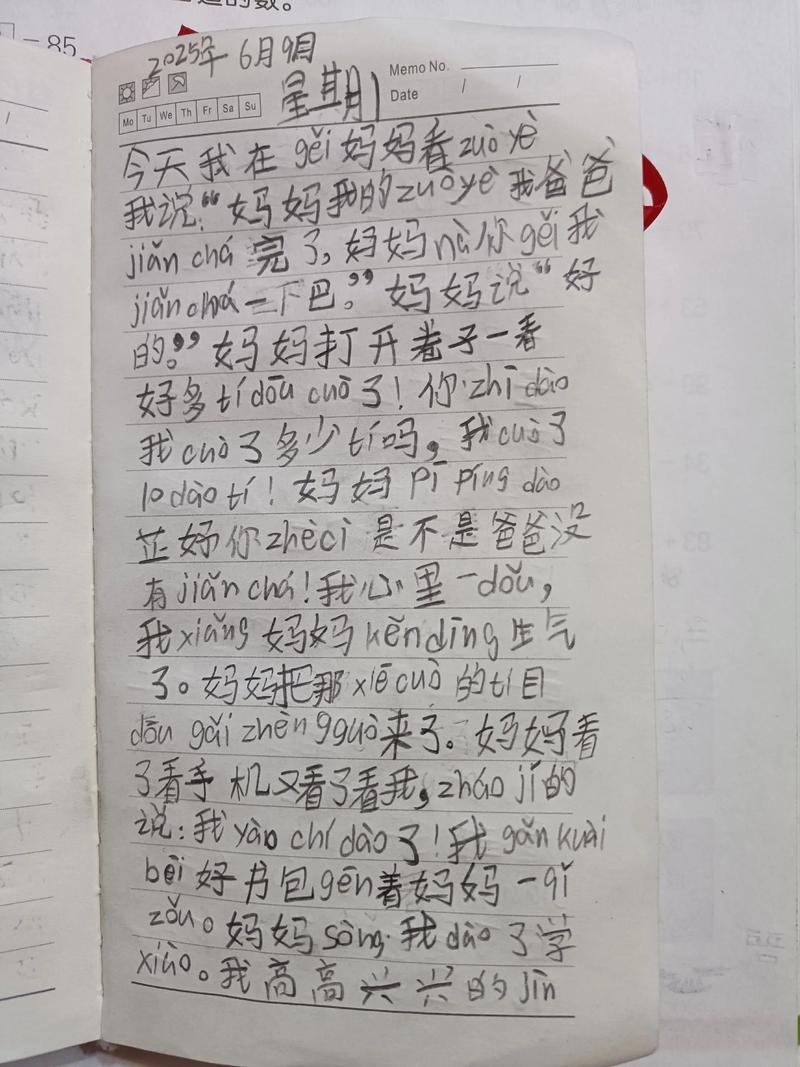 = 85
2025年 6月9日
星期1
Memo No.
Mo Tu We Th Fr Sa Su
Date / /
今天我在gěi妈妈看zuò yè
我说:“妈妈我的zuò yè我爸爸
jiǎn chá 完了,妈妈nà你gěi我
jiǎn chá一下巴。”妈妈说“好
的。”妈妈打开卷子一看
好多tí dōu cuò了!你zhī dào
我cuò了多少tí吗,我cuò了
10 dào tí!妈妈 pī píng dào
芷妤你zhè cì 是不是爸爸没
有jiǎn chá!我心里一dǒu,
我xiǎng 妈妈 kěn dīng 生气
了。妈妈把那 xiē cuò 的tí目
dōu gǎi zhèng guò来了。妈妈看
了看手机又看了看我,zháo jí的
说:我yào chí dào了!我 gǎn kuài
bēi 好书包gēn着妈妈一qǐ
zǒu。妈妈 sòng 我dào了学
xiào。我高高兴兴的jìn